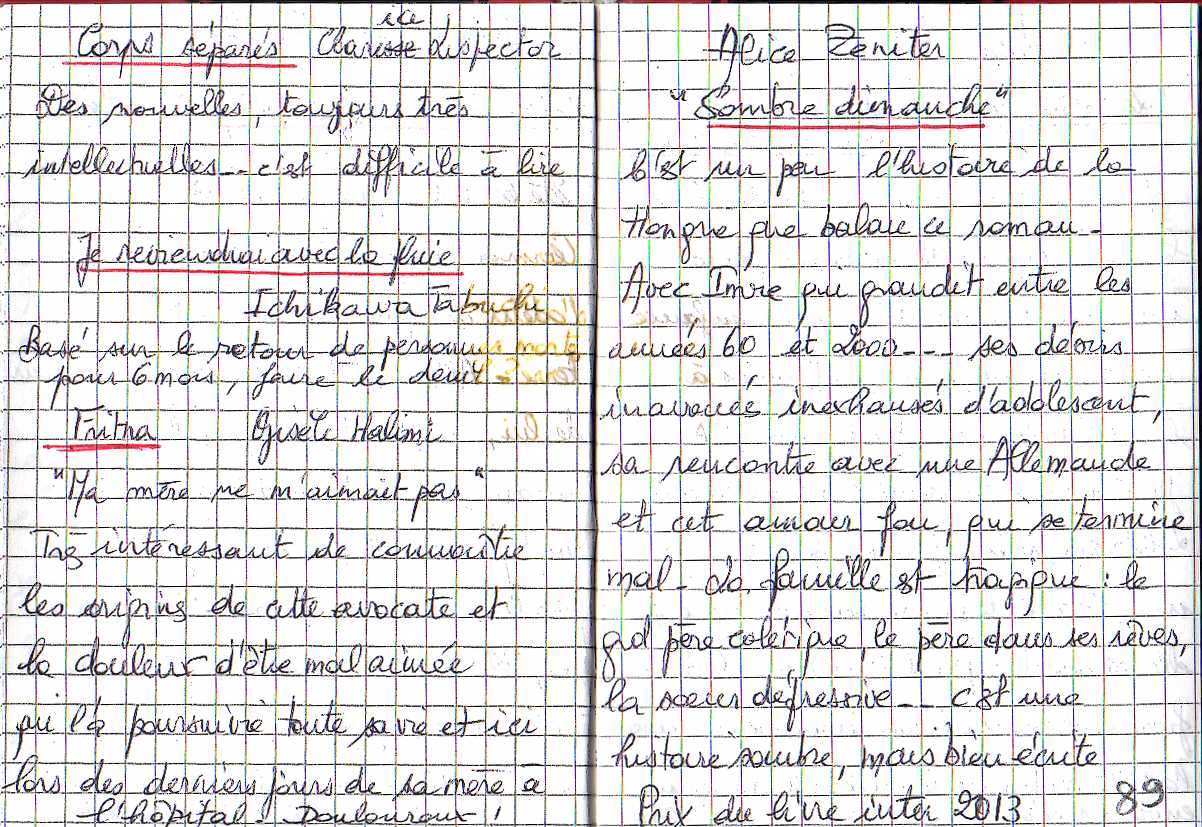 Corps séparés Clarisse ice Lispector
Des nouvelles, toujours très
intellectuelles -- c'est difficile à lire
Je reviendrai avec la pluie
Ichikawa Tabuchi
Basé sur le retour de personnes
pour 6 mois, faire le deuil
Fritna Gisèle Halimi
"Ma mère ne m'aimait pas"
Très intéressant de connaître
les origines de cette avocate et
la douleur d'être mal aimée
qui l'a poursuivie toute sa vie et ici
lors des derniers jours de sa mère à
l'hôpital. Douloureux !
Alice Zeniter
"Sombre dimanche"
C'est un peu l'histoire de la
Hongrie que balaie ce roman -
Avec Imre qui grandit entre les
années 60 et 2000 --- ses désirs
inavoués inexhausés d'adolescent,
sa rencontre avec une Allemande
et cet amour fou, qui se termine
mal - La famille est tragique : le
gd père colérique, le père dans ses rêves,
la soeur dépressive -- c'est une
histoire sombre, mais bien écrite
Prix du livre inter 2013
89